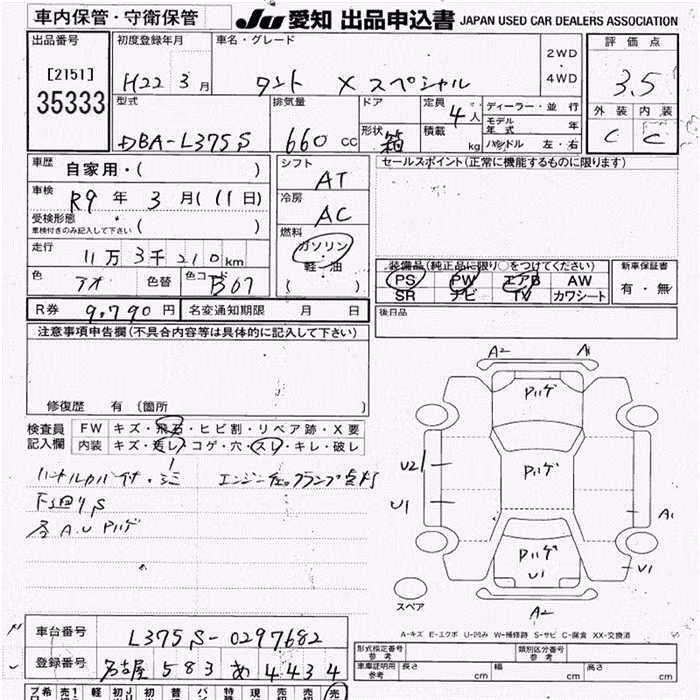 車内保管・守衛保管
JU 愛知 出品申込書 JAPAN USED CAR DEALERS ASSOCIATION
出品番号
[2151]
35333
初度登録年月
H22 3月
車名・グレード
タント X スペシャル
2WD
・
4WD
評価点
3.5
外装 内装
C C
型式
DBA-L375S
排気量
660 CC
ドア
形状 箱
定員 4人
積載 kg
ディーラー・並行
モデル年式 年
ハンドル 左・右
車歴
自家用・( )
車検
R9年 3月(11日)
受検形態
車検付きのみ記入して下さい ( )
走行
11万3千210km
色
アオ
色替
色コード
B67
シフト
AT
冷房
AC
燃料
ガソリン
・
軽・油
( )
セールスポイント(正常に機能するものに限ります)
装備品(純正品に限り○をつけてください)
PS PW エアB AW
SR ナビ TV カワシート
新車保証書
有・無
後日品
R券 9,790円
名変通知期限 月 日
注意事項申告欄(不具合内容等は具体的に記入して下さい)
修復歴 有 (箇所 )
検査員
記入欄
FW キズ・飛石・ヒビ割・リペア跡・X要
内装 キズ・汚レ・コゲ・穴・スレ・キレ・破レ
エンジンチェックランプ点灯
下廻りS
A.U Pハゲ
A2 A1
Pハゲ
U2
Pハゲ
U1
A1
Pハゲ
U1
U1
A2
スペア
A-キズ E-エクボ U-凹み W-補修跡 S-サビ C-腐食 XX-交換済
車台番号
L375S-0297682
登録番号
名古屋 583 あ 4434
形式指定番号
参考
類別区分番号
参考
車庫証明用
参考
長さ cm
幅 cm
高さ cm